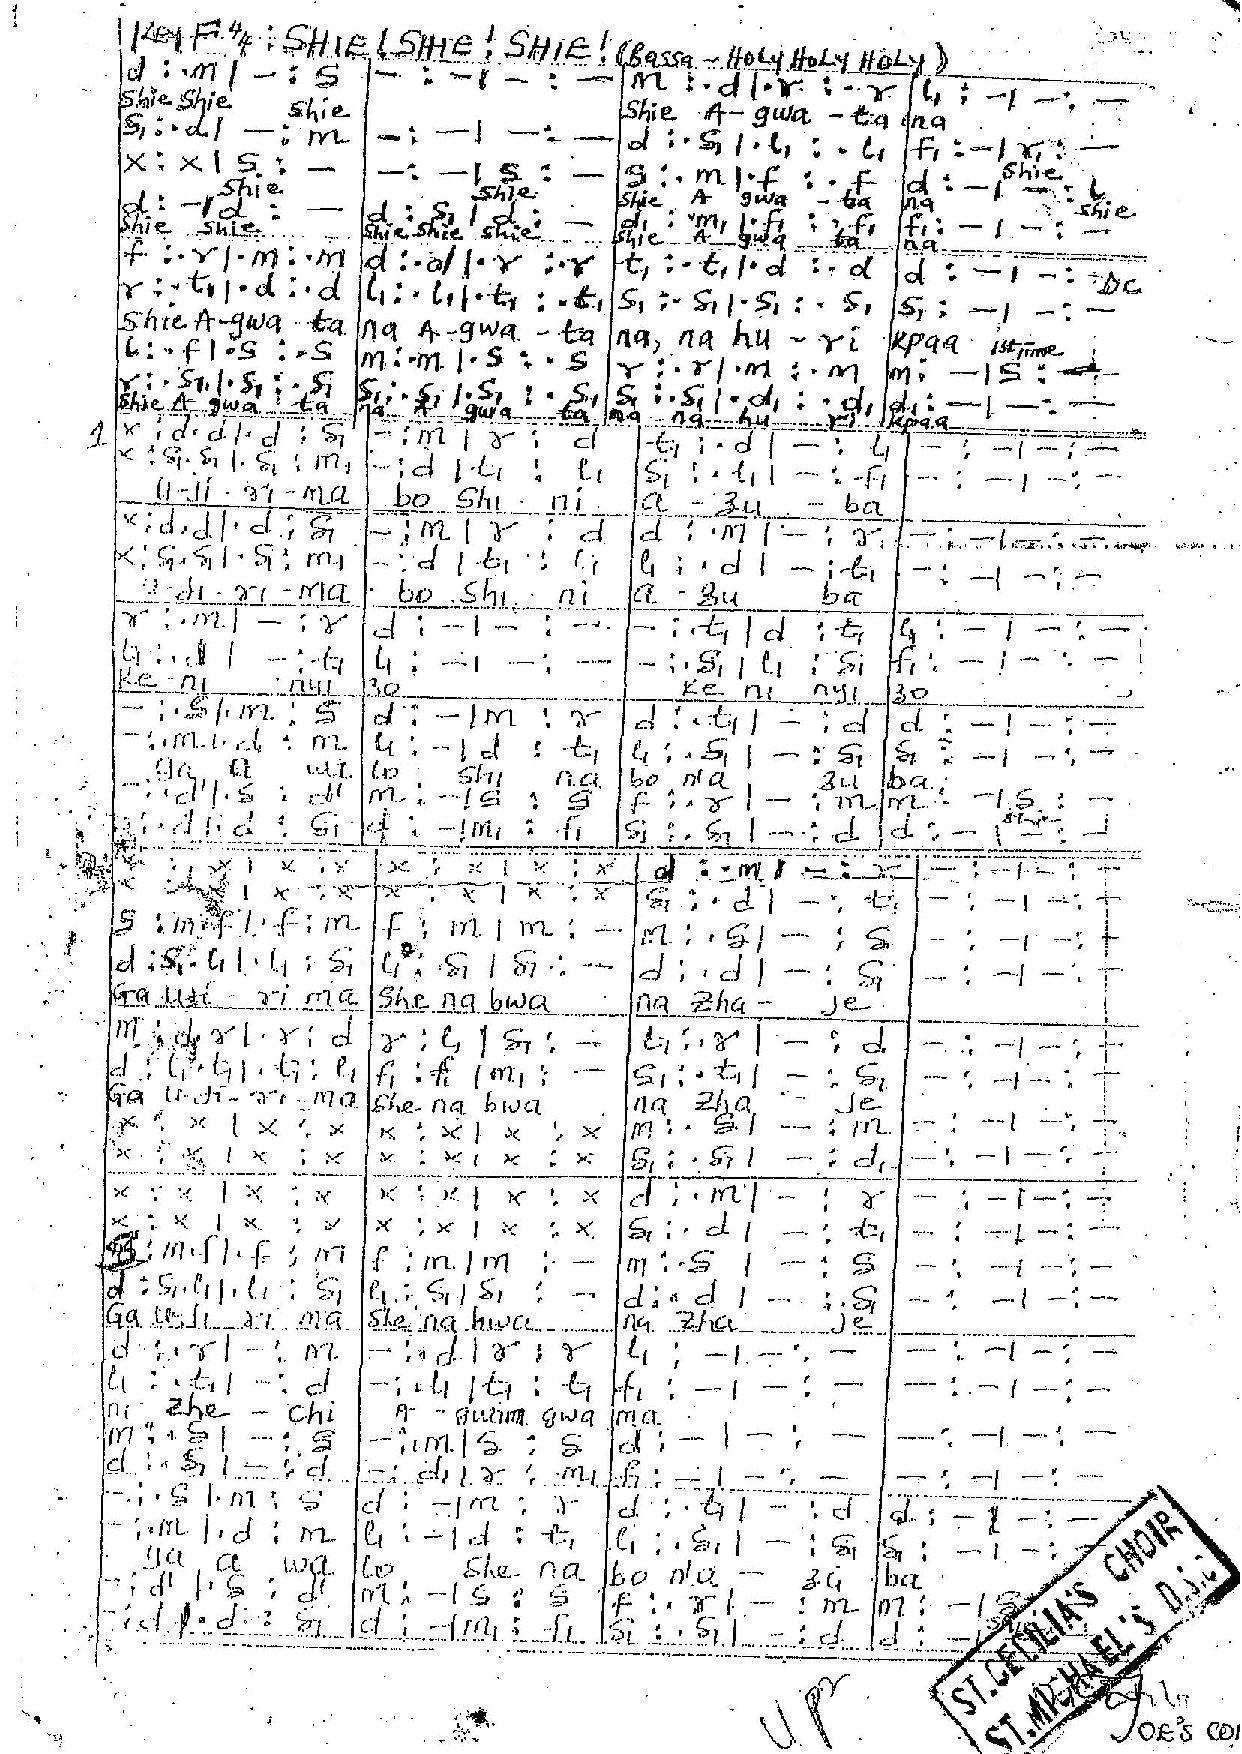 Key F 4/4 : SHIE! SHIE! SHIE! (Bassa - HOLY HOLY HOLY)
d : .m | - : s | - : - | - : - | m : .d | .r : .r | l₁ : - | - : -
Shie Shie Shie Shie A-gwa-ta na
s₁ : .d | - : m | - : - | - : - | d : .s₁ | .l₁ : .l₁ | f₁ : - | r₁ : -
x : x | s : - | - : - | s : - | s : .m | .f : .f | d : - | - : l
Shie Shie Shie A gwa - ta na Shie Shie
d : - | d : - | d : s₁ | d : - | d₁ : .m₁ | .f₁ : .f₁ | f₁ : - | - : -
Shie Shie Shie Shie Shie Shie A gwa ta na
f : .r | .m : .m | d : .d | .r : .r | t₁ : .t₁ | .d : .d | d : - | - : - DC
r : .t₁ | .d : .d | l₁ : .l₁ | .t₁ : .t₁ | s₁ : .s₁ | .s₁ : .s₁ | s₁ : - | - : -
Shie A-gwa-ta na A-gwa-ta na, na hu - ri kpaa 1st Time
l : .f | .s : .s | m : .m | .s : .s | r : .r | .m : .m | m : - | s : -
r : .s₁ | .s₁ : .s₁ | s₁ : .s₁ | .s₁ : .s₁ | s₁ : .s₁ | .d₁ : .d₁ | d₁ : - | - : -
Shie A gwa ta na A gwa ta na na hu ri kpaa
1 x : d.d | .d : s₁ | - : m | r : d | t₁ : .d | - : l₁ | - : - | - : -
x : s₁.s₁ | .s₁ : m₁ | - : d | t₁ : l₁ | s₁ : .l₁ | - : f₁ | - : - | - : -
ri-ma bo shi ni a - zu - ba
x : d.d | .d : s₁ | - : m | r : d | d : .m | - : r | - : - | - : -
x : s₁.s₁ | .s₁ : m₁ | - : d | t₁ : l₁ | l₁ : .d | - : t₁ | - : - | - : -
ri-ma bo shi ni a - zu ba
r : .m | - : r | d : - | - : - | - : .t₁ | d : t₁ | l₁ : - | - : -
l₁ : .d | - : t₁ | l₁ : - | - : - | - : .s₁ | l₁ : s₁ | f₁ : - | - : -
Ke ni nyi zo Ke ni nyi zo
- : .s | .m : s | d : - | m : r | d : .t₁ | - : d | d : - | - : -
- : .m | .d : m | l₁ : - | d : t₁ | l₁ : .s₁ | - : s₁ | s₁ : - | - : -
ya a wa lo shi na bo na zu ba
- : .d' | .s : d' | m : - | s : s | f : .r | - : m | m : - | s : -
- : .d | .d : s₁ | d : - | m₁ : f₁ | s₁ : .s₁ | - : d | d : - | - : -
x : x | x : x | x : x | x : x | d : .m | - : r | - : - | - : -
x : x | x : x | x : x | x : x | s₁ : .d | - : t₁ | - : - | - : -
s : m.f | .f : m | f : m | m : - | m : .s | - : s | - : - | - : -
d : s₁.l₁ | .l₁ : s₁ | l₁ : s₁ | s₁ : - | d : .d | - : s₁ | - : - | - : -
Ga ri ma She na bwa na zha - je
m : d.r | .r : d | r : l₁ | s₁ : - | l₁ : .r | - : d | - : - | - : -
d : l₁.t₁ | .t₁ : l₁ | f₁ : f₁ | m₁ : - | s₁ : .t₁ | - : s₁ | - : - | - : -
Ga ri - ma She na bwa na zha - je
x : x | x : x | x : x | x : x | m : .s | - : m | - : - | - : -
x : x | x : x | x : x | x : x | s₁ : .s₁ | - : d₁ | - : - | - : -
x : x | x : x | x : x | x : x | d : .m | - : r | - : - | - : -
x : x | x : x | x : x | x : x | s₁ : .d | - : t₁ | - : - | - : -
s : m.f | .f : m | f : m | m : - | m : .s | - : s | - : - | - : -
d : s₁.l₁ | .l₁ : s₁ | l₁ : s₁ | s₁ : - | d : .d | - : s₁ | - : - | - : -
Ga ri ma She na bwa na zha je
d : .r | - : m | - : .d | r : r | l₁ : - | - : - | - : - | - : -
l₁ : .t₁ | - : d | - : .l₁ | t₁ : t₁ | f₁ : - | - : - | - : - | - : -
ni zhe - chi A - gwa ma
m : .s | - : s | - : .m | s : s | d : - | - : - | - : - | - : -
d : .s₁ | - : d | - : .d | r : m₁ | f₁ : - | - : - | - : - | - : -
- : .s | .m : s | d : - | m : r | d : .t₁ | - : d | d : - | - : -
- : .m | .d : m | l₁ : - | d : t₁ | l₁ : .s₁ | - : s₁ | s₁ : - | - : -
ya a wa lo she na bo na - zu ba
- : .d' | .s : d' | m : - | s : s | f : .r | - : m | m : - | s
- : .d | .d : s₁ | d : - | m₁ : f₁ | s₁ : .s₁ | - : d | d : - |
ST. CECILIA'S CHOIR
ST. MICHAEL'S D.S.C
JOE'S COM